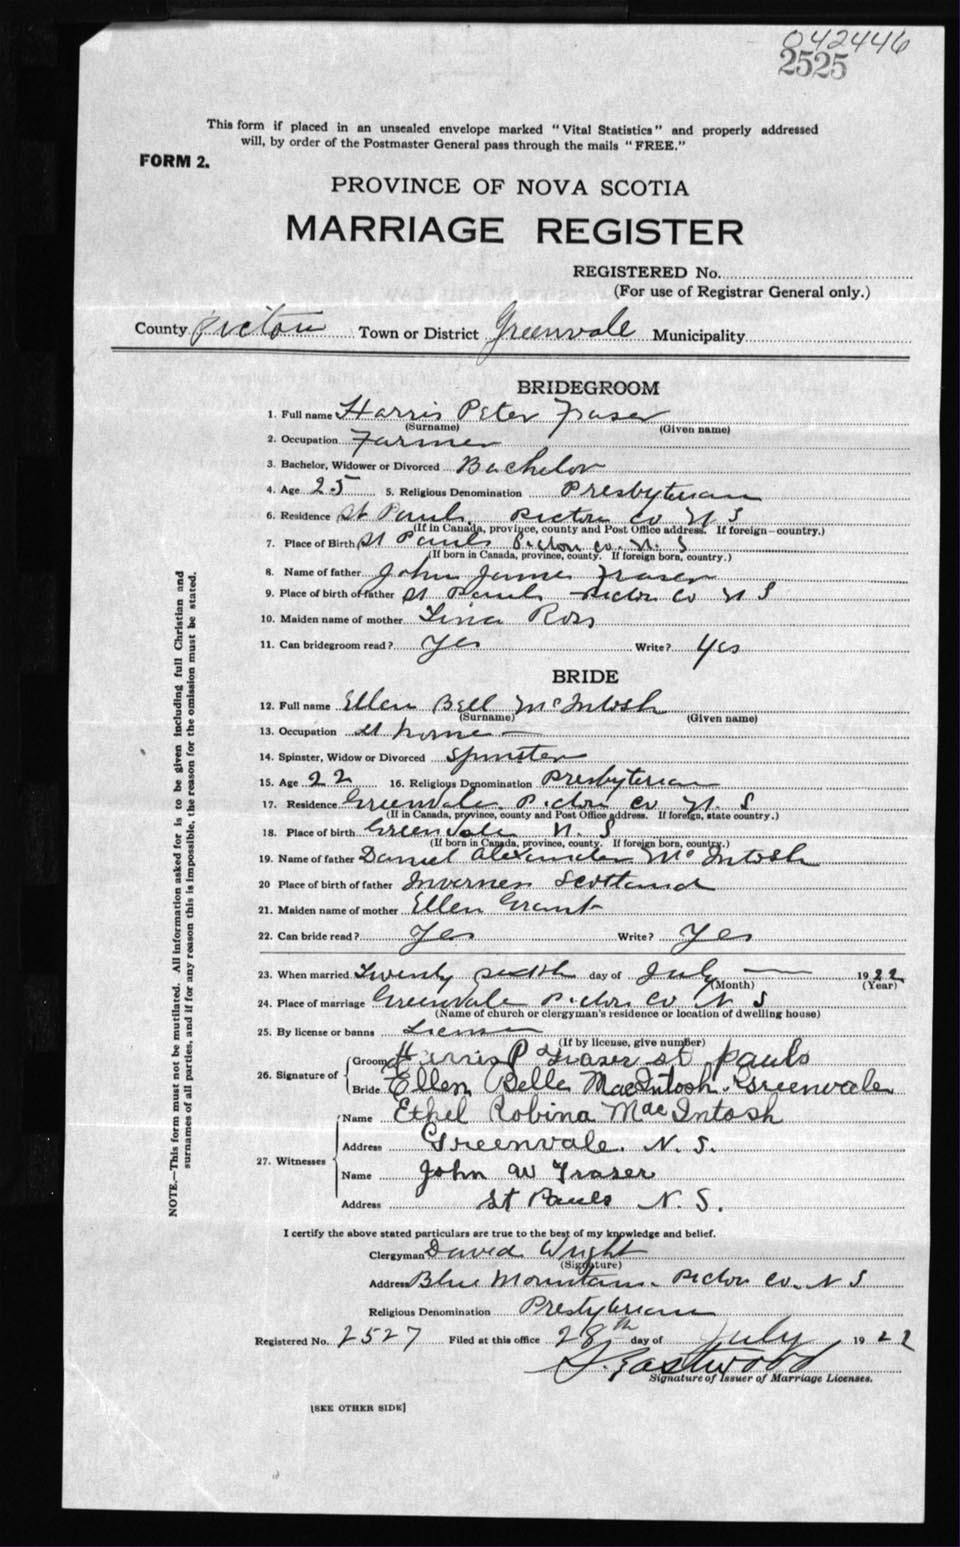 042446
2525
This form if placed in an unsealed envelope marked "Vital Statistics" and properly addressed
will, by order of the Postmaster General pass through the mails "FREE."
FORM 2.
PROVINCE OF NOVA SCOTIA
MARRIAGE REGISTER
REGISTERED No.
(For use of Registrar General only.)
County Pictou Town or District Greenvale Municipality
BRIDEGROOM
1. Full name Harris Peter Fraser
(Surname) (Given name)
2. Occupation Farmer
3. Bachelor, Widower or Divorced Bachelor
4. Age 25 5. Religious Denomination Presbyterian
6. Residence St Pauls Pictou Co N S
(If in Canada, province, county and Post Office address. If foreign—country.)
7. Place of Birth St Pauls Pictou Co. N. S
(If born in Canada, province, county. If foreign born, country.)
8. Name of father John James Fraser
9. Place of birth of father St Pauls Pictou Co N S
10. Maiden name of mother Tina Ross
11. Can bridegroom read? Yes Write? Yes
BRIDE
12. Full name Ellen Bell McIntosh
(Surname) (Given name)
13. Occupation at home —
14. Spinster, Widow or Divorced Spinster
15. Age 22 16. Religious Denomination Presbyterian
17. Residence Greenvale Pictou Co N. S
(If in Canada, province, county and Post Office address. If foreign, state country.)
18. Place of birth Greenvale N. S
(If born in Canada, province, county. If foreign born, country.)
19. Name of father Daniel Alexander McIntosh
20 Place of birth of father Inverness Scotland
21. Maiden name of mother Ellen Grant
22. Can bride read? Yes Write? Yes
23. When married Twenty sixth day of July — 1922
(Month) (Year)
24. Place of marriage Greenvale Pictou Co N S
(Name of church or clergyman's residence or location of dwelling house)
25. By license or banns License
(If by license, give number)
26. Signature of Groom Harris P Fraser St pauls
Bride Ellen Bella MacIntosh Greenvale
27. Witnesses Name Ethel Robina MacIntosh
Address Greenvale. N. S.
Name John W Fraser
Address St Pauls N. S.
I certify the above stated particulars are true to the best of my knowledge and belief.
Clergyman David Wright
(Signature)
Address Blue Mountain. Pictou Co. N S
Religious Denomination Presbyterian
Registered No. 2527 Filed at this office 28th day of July 1922
Eastwood
Signature of Issuer of Marriage Licenses.
[SEE OTHER SIDE]
NOTE.—This form must not be mutilated. All information asked for is to be given including full Christian and
surnames of all parties, and if for any reason this is impossible, the reason for the omission must be stated.